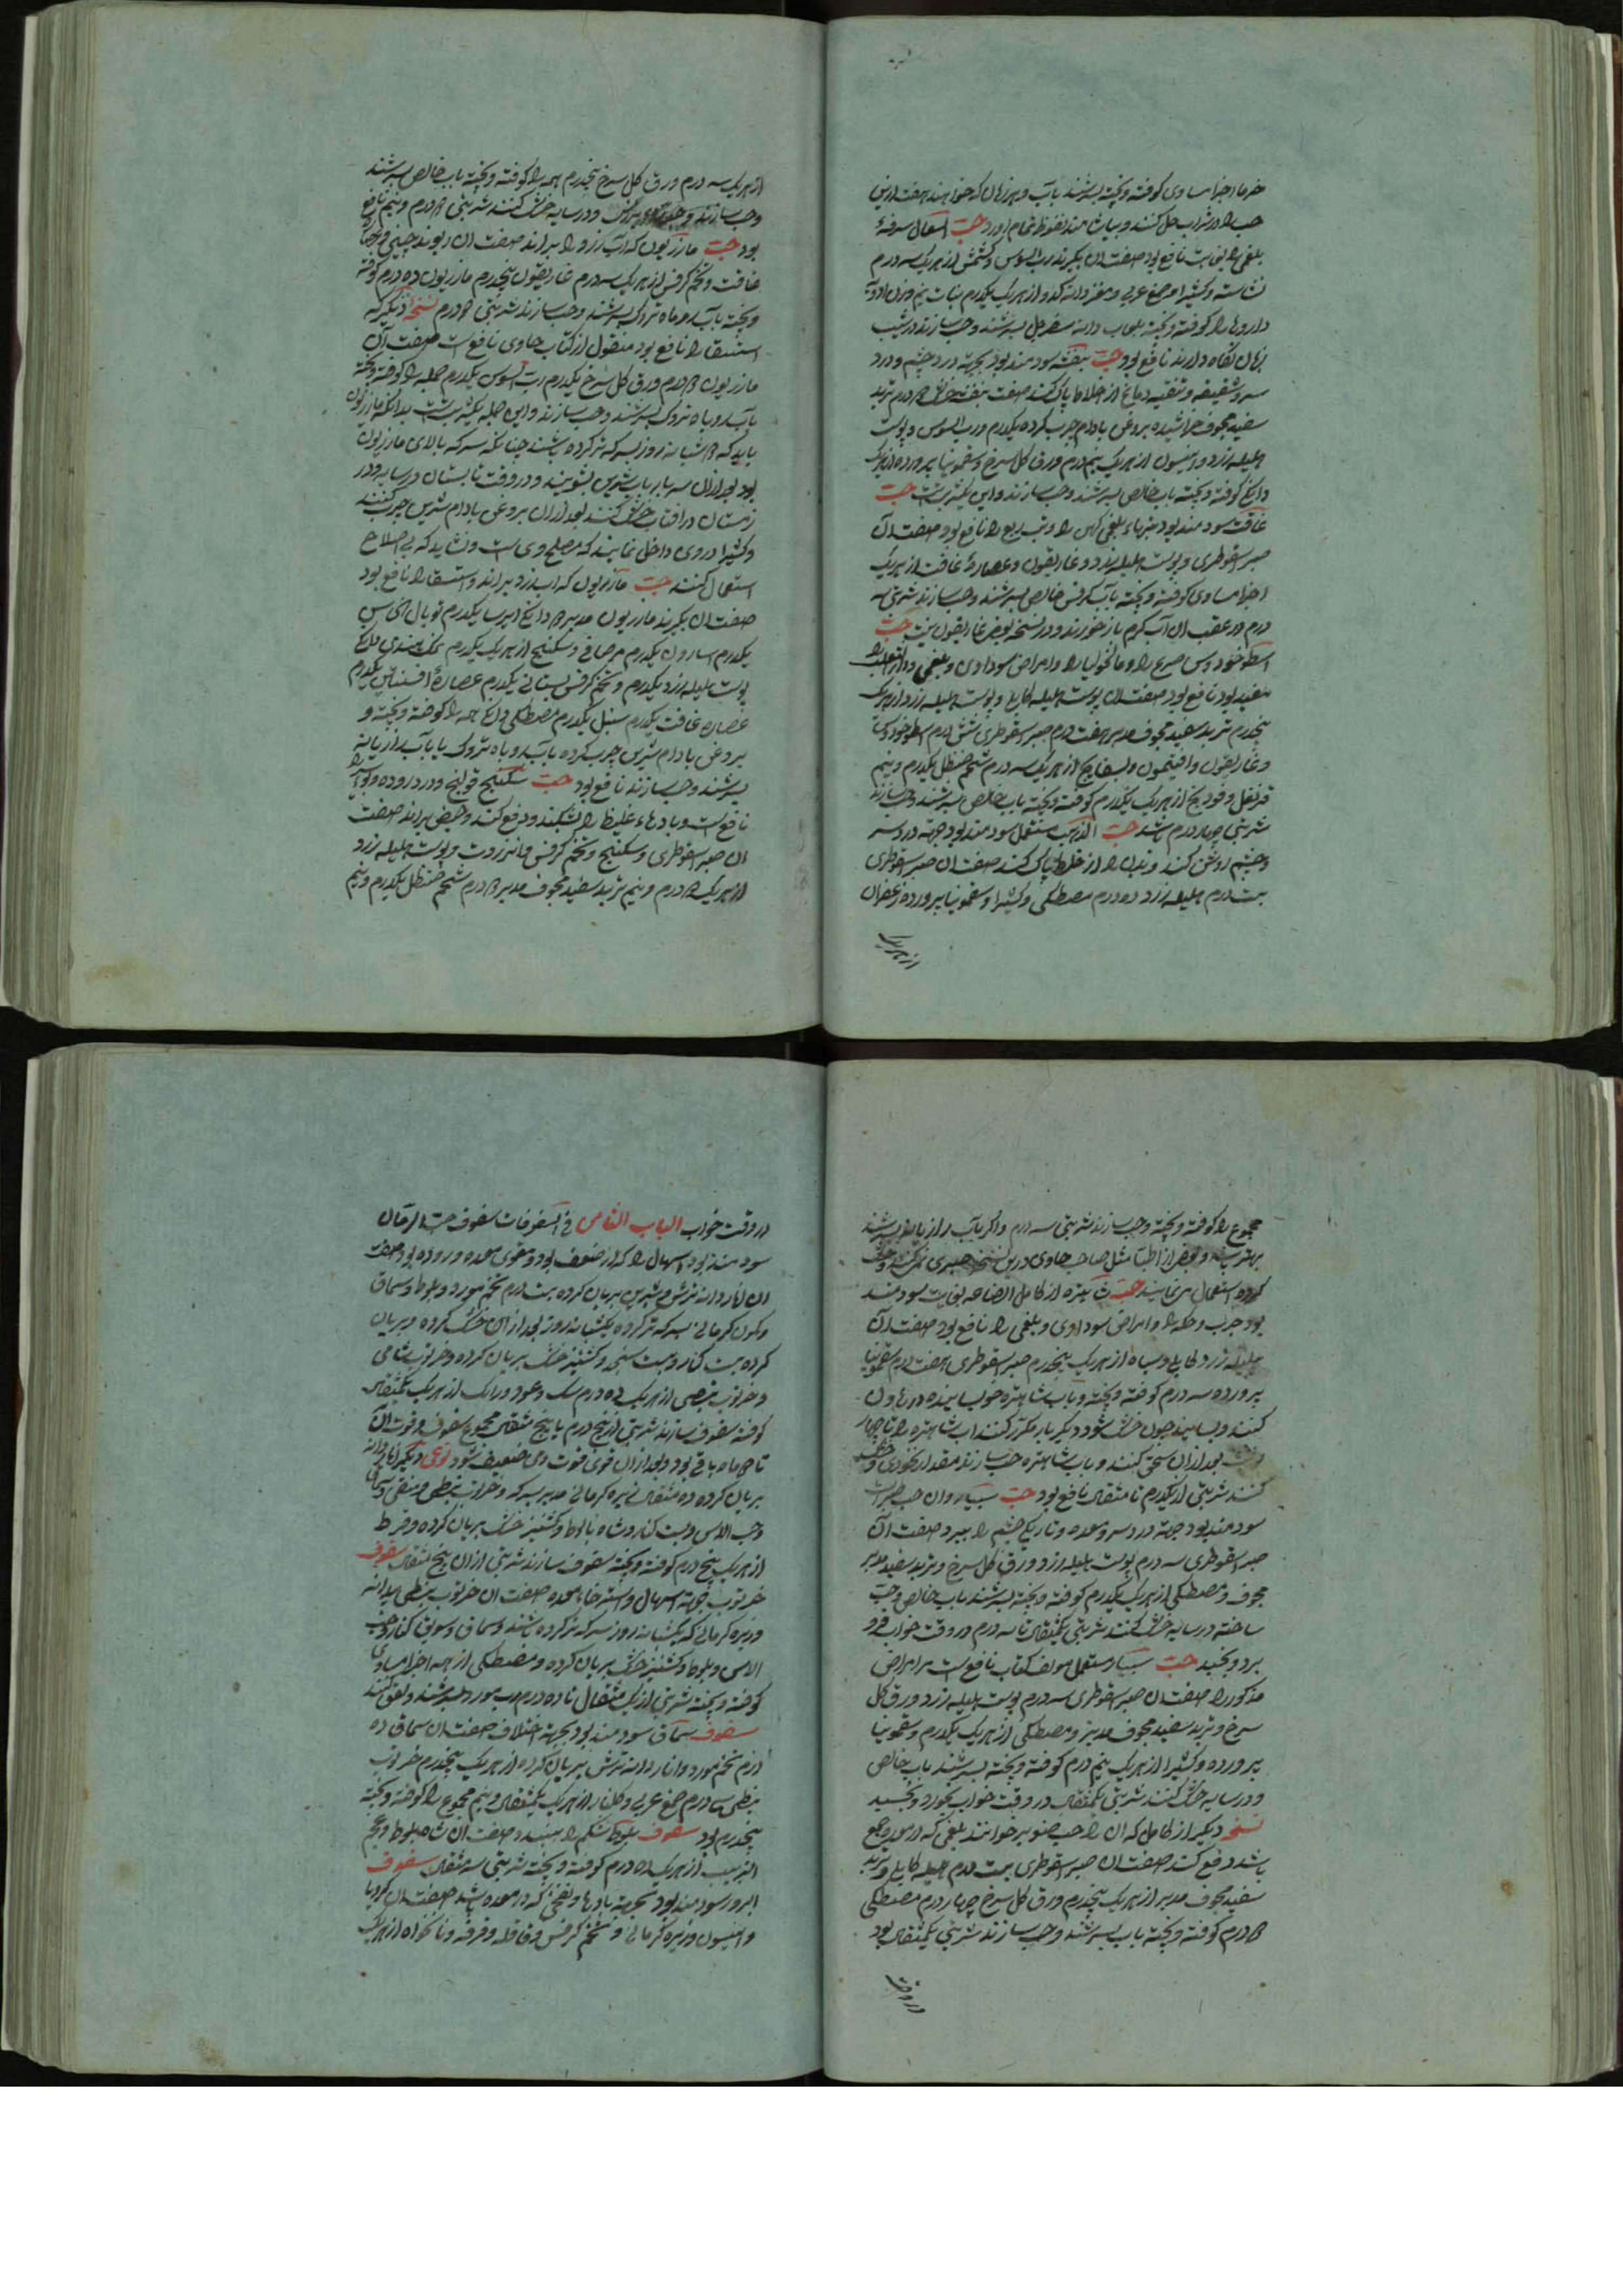 خرما اجزا مساوی کوفته و پخته بسرشند بآب و هر زمان که خواهند هفت ازین
حب را در شراب حل کنند و بیاشامند نعوظ تمام آورد حب السعال سرفهٔ
بلغمی را بغایت نافع بود صفت آن بگیرند رب السوس و کشمش از هر یک سه درم
نشاسته و کثیرا و صمغ عربی و مغز دانه کدو از هر یک یکدرم نبات نیم وزن ادویه
داروها را کوفته و پخته بلعاب دانه سفرجل بسرشند و حب سازند در شب
زبان نگاه دارند نافع بود حب بنفشه سودمند بود بجهة درد چشم و درد
سر و شقیقه و تنقیه دماغ از اخلاط پاک کند صفت بنفشه خشک ۲ درم تربد
سفید مجوف خراشیده بروغن بادام چرب کرده یکدرم و رب السوس و پوست
هلیله زرد و انیسون از هر یک نیم درم ورق گل سرخ و سقمونیا پرورده از هر یک
دانگ کوفته و پخته بآب خالص بسرشند و حب سازند و این یکشربتست حب
غافت سودمند بود تبهاء بلغمی کهن را و تب ربع را نافع بود صفت آن
صبر اسقوطری و پوست هلیله زرد و غاریقون و عصارهٔ غافت از هر یک
اجزا مساوی کوفته و پخته بآب کرفس خالص بسرشند و حب سازند شربتی سه
درم در عقب آن آب گرم باز خورند و در نسخه بعوض غاریقون نیست حب
اسطوخودوس صرع را و مالخولیا را و امراض سوداوی و بلغمی و داء الثعلب را
مفید بود نافع بود صفت آن پوست هلیله کابلی و پوست هلیله زرد از هر یک
پنجدرم تربد سفید مجوف مدبر هفت درم صبر اسقوطری شش درم اسطوخودوس
و غاریقون و افتیمون و بسفایج از هر یک سه درم شحم حنظل یکدرم و نیم
قرنفل و فودنج از هر یک یکدرم کوفته و پخته بآب خالص بسرشند و حب سازند
شربتی چهار درم باشد حب الذهب مستعمل سودمند بود جهة درد سر
و چشم روشن کند و بدن را از خلط پاک کند صفت آن صبر اسقوطری
بیست درم هلیله زرد ده درم مصطکی و کثیرا و سقمونیا پرورده زعفران
از هر یک
از هر یک سه درم ورق گل سرخ پنجدرم همه را کوفته و پخته بآب خالص بسرشند
و حب سازند و در سایه خشک کنند شربتی ۲ درم و نیم نافع
بود حب مازریون که آب زرد را براند صفت آن ریوند چینی و عصاره
غافت و تخم کرفس از هر یک سه درم غاریقون پنجدرم مازریون ده درم کوفته
و پخته بآب روماه تروک بسرشند و حب سازند شربتی ۲ درم نسخهٔ دیگر که
استسقا را نافع بود منقول از کتاب حاوی نافع است صفت آن
مازریون ۲ درم ورق گل سرخ یکدرم رب السوس یکدرم جمله را کوفته و پخته
بآب روباه تروک بسرشند و حب سازند و این جمله یکشربتست بدانکه مازریون
باید که ۲ شبانه روز بسرکه تر کرده باشند چنانکه سرکه بالای مازریون
بود بعد از آن سه بار بآب شیرین بشویند و در وقت تابستان در سایه و در
زمستان در آفتاب خشک کنند بعد از آن بروغن بادام شیرین چرب کنند
و کثیرا در وی داخل نمایند که مصلح ویست و نشاید که بی اصلاح
استعمال کنند حب مازریون که آب زرد براند و استسقا را نافع بود
صفت آن بگیرند مازریون مدبر ۲ دانگ ایرسا یکدرم توبال النحاس
یکدرم اسارون یکدرم مر صافی و سکبینج از هر یک یکدرم نمک هندی دانگ
پوست هلیله زرد یکدرم و تخم کرفس بستانی یکدرم عصارهٔ افسنتین یکدرم
عصاره غافت یکدرم سنبل یکدرم مصطکی دانگ همه را کوفته و پخته و
بروغن بادام شیرین چرب کرده بآب روباه تروک یا بآب رازیانه
بسرشند و حب سازند نافع بود حب سکبینج قولنج و درد روده و بواسیر را
نافع است و بادهاء غلیظ را بشکند و دفع کند و حیض براند صفت
آن صبر اسقوطری و سکبینج و تخم کرفس و انزروت و پوست هلیله زرد
از هر یک ۲ درم و نیم تربد سفید مجوف مدبر ۲ درم شحم حنظل یکدرم و نیم
مجموع را کوفته و پخته و حب سازند شربتی سه درم و اگر بآب رازیانه بسرشند
بهتر باشد و بعضی از اطبا مثل صاحب حاوی درین نسخه صبر نمی‌کنند و خشک
کرده استعمال می‌نمایند حب شاهتره از کامل الصناعه بغایت سودمند
بود جرب و حکه را و امراض سوداوی و بلغمی را نافع بود صفت آن
هلیله زرد و کابلی و سیاه از هر یک پنجدرم صبر اسقوطری هفت درم سقمونیا
پرورده سه درم کوفته و پخته و بآب شاهتره خوب سانیده در هاون
کنند و بسایند چون خشک شود دیگر بار مکرر کنند آب شاهتره را تا چهار
بعد از آن سحق کنند و بآب شاهتره حب سازند مقدار نخودی و خشک
کنند شربتی از یکدرم تا مثقال نافع بود حب سیاد و آن حب صبر است
سودمند بود جهة درد سر و معده و تاریکی چشم را ببرد صفت آن
صبر اسقوطری سه درم پوست هلیله زرد و ورق گل سرخ و تربد سفید مدبر
مجوف و مصطکی از هر یک یکدرم کوفته و پخته بسرشند بآب خالص و حب
ساخته در سایه خشک کنند شربتی یکمثقال تا سه درم در وقت خواب فرو
برد و بخسبد حب سیاد مستعمل مولف کتاب نافع است مر امراض
مذکور را صفت آن صبر اسقوطری سه درم پوست هلیله زرد و ورق گل
سرخ و تربد سفید مجوف مدبر و مصطکی از هر یک یکدرم و سقمونیا
پرورده و کثیرا از هر یک نیم درم کوفته و پخته بسرشند بآب خالص
و در سایه خشک کنند شربتی یکمثقال در وقت خواب بخورد و بخسبد
نسخه دیگر از کامل که آن را حب صنوبر خوانند بلغمی که در معده جمع
باشد دفع کند صفت آن صبر اسقوطری بیست درم هلیله کابلی و تربد
سفید مجوف مدبر از هر یک پنجدرم ورق گل سرخ چهار درم مصطکی
۲ درم کوفته و پخته بآب بسرشند و حب سازند شربتی یکمثقال بود
در وقت
در وقت خواب الباب الثامن فی السفوفات سفوف حب الرمان
سودمند بود اسهال را که از ضعف بود و مقوی معده و روده بود صفت
آن انار دانه ترش و شیرین بریان کرده بیست درم تخم مورد و بلوط و سماق
و کمون کرمانی بسرکه تر کرده یکشبانه روز بعد از آن خشک کرده و بریان
کرده بیست کنار و بیست سنجد و کشنیز خشک بریان کرده و خرنوب شامی
و خرنوب نبطی از هر یک ده درم سک و عود و رامک از هر یک یکمثقال
کوفته سفوف سازند شربتی از پنج درم یا پنج مثقال مجموع سفوف و قوت آن
تا ۲ ماه باقی بود و بعد از آن قوی قوت وی ضعیف شود نوعی دیگر انار دانه
بریان کرده ده مثقال زیره کرمانی مدبر بسرکه و خرنوب نبطی و سنقی و سماق
و حب الآس و بیست کنار و شاه بلوط و کشنیز خشک بریان کرده و قرظ
از هر یک پنج درم کوفته و پخته سفوف سازند شربتی از آن پنج مثقال سفوف
خرنوب جهة اسهال و استرخاء معده صفت آن خرنوب نبطی بیدانه
و زیره کرمانی که یکشبانه روز بسرکه تر کرده باشند و سماق و سویق کنار و حب
الآس و بلوط و کشنیز خشک بریان کرده و مصطکی از همه اجزا مساوی
کوفته و پخته شربتی از یک مثقال تا ده درم برب مورد بسرشند و لعق کنند
سفوف سماق سودمند بود بجهة اختلاف صفت آن سماق ده
درم تخم مورد و انار دانه ترش بریان کرده از هر یک پنجدرم خرنوب
نبطی سه درم صمغ عربی و گلنار از هر یک یکمثقال و نیم مجموع را کوفته و پخته
پنجدرم بود سفوف بلوط شکم را ببندد صفت آن شاه بلوط و عجم
الزبیب از هر یک ده درم کوفته و پخته شربتی سه مثقال سفوف
البزور سودمند بود بجهة بادها و نفخی که در معده باشد صفت آن کرویا
و انیسون و زیره کرمانی و تخم کرفس و قاقله و قرفه و نانخواه از هر یک